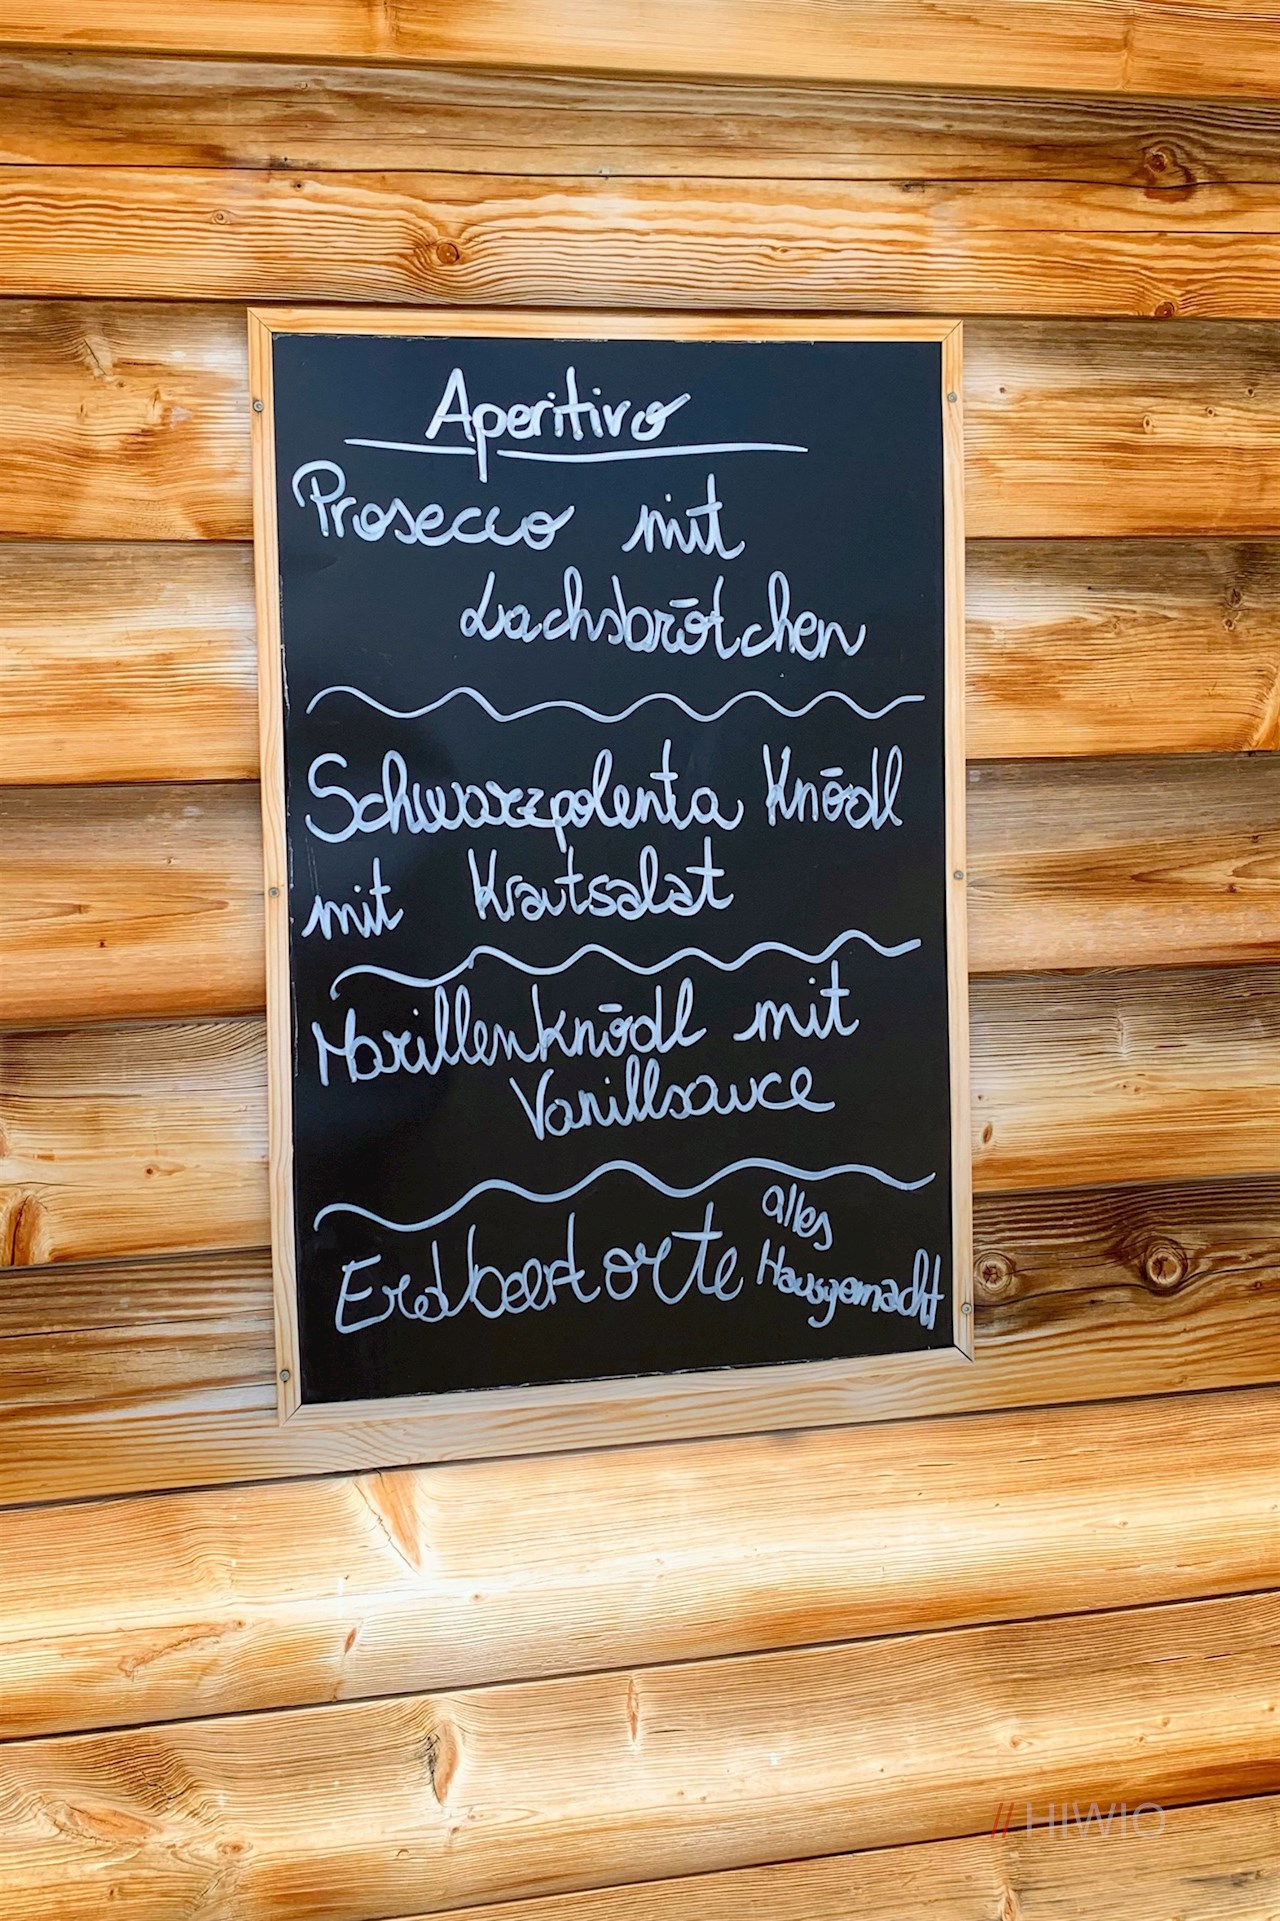 Aperitivo
Prosecco mit
Lachsbrötchen
Schwarzpolenta Knödl
mit Krautsalat
Marillenknödl mit
Vanillsauce
Erdbeertorte
alles
Hausgemacht
// HIWIO